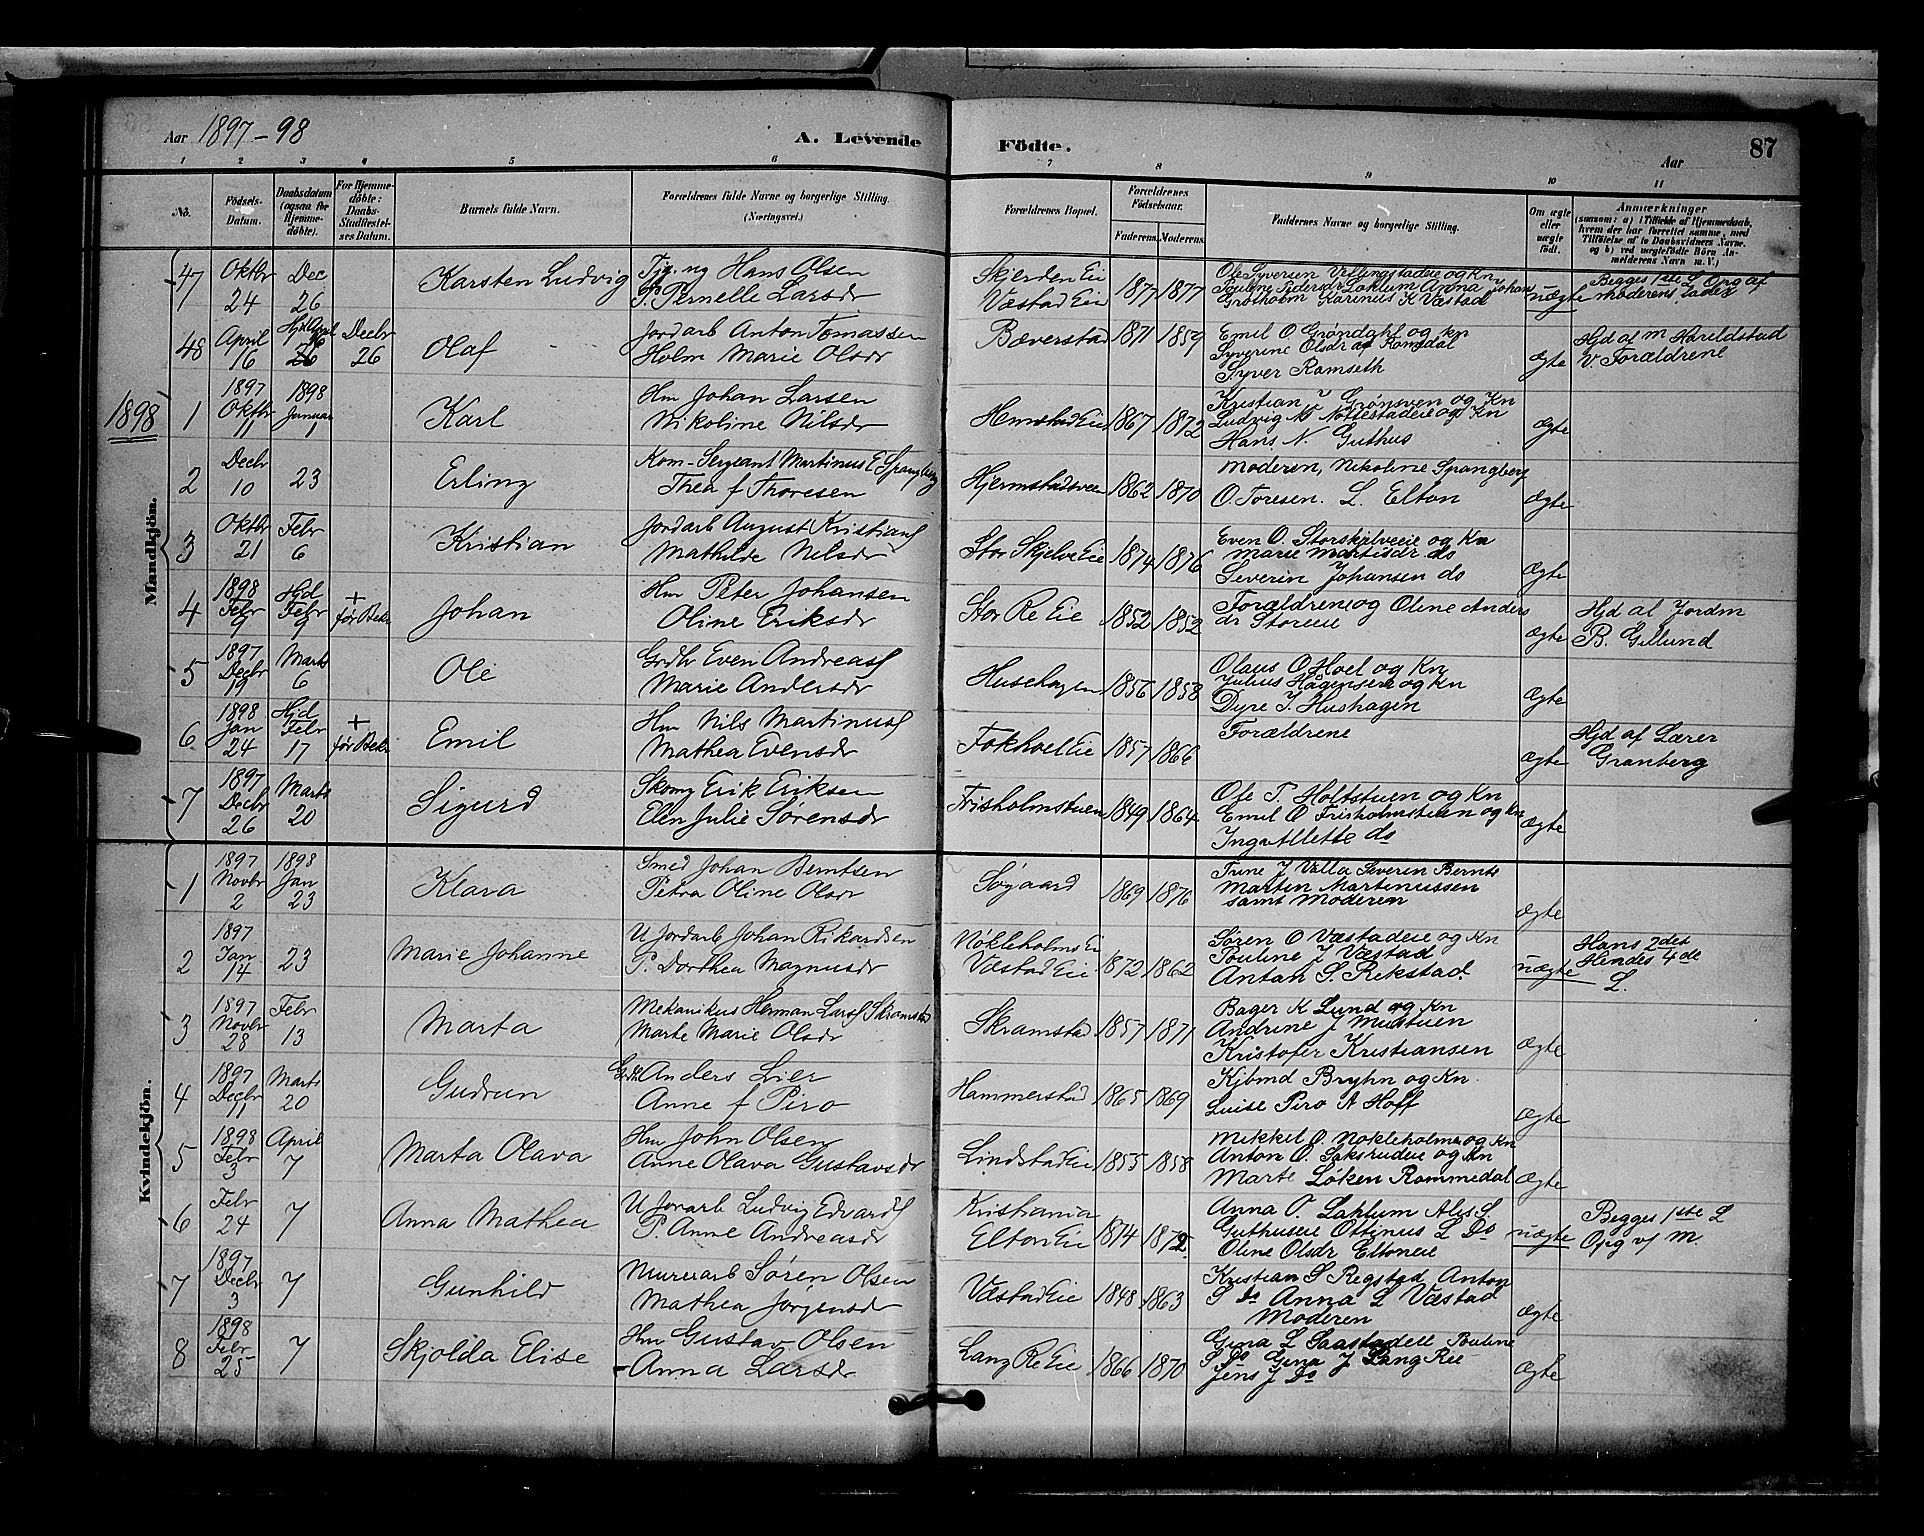 Aar 1897-98
A. Levende
Födte.
Aar
87
1 2 3 4 5 6 7 8 9 10 11
No.
Födsels-Datum.
Daabsdatum (ogsaa for Hjemmedöbte).
For Hjemmedöbte: Daabs-Stadfæstelses Datum.
Barnets fulde Navn.
Forældrenes fulde Navne og borgerlige Stilling. (Næringsvei.)
Forældrenes Bopæl.
Forældrenes Födselsaar.
Faderens. Moderens.
Faddernes Navne og borgerlige Stilling.
Om ægte eller uægte födt.
Anmærkninger (saasom: a) i Tilfælde af Hjemmedaab, hvem der har forrettet samme, med Tilföielse af to Daabsvidners Navne, og b) ved uægtefödte Börn Anmelderens Navn m. V.)
Mandkjön.
47 Oktbr 24 Dec 26 Karsten Ludvig
Tjg ug Hans Olsen
P. Pernelle Larsdr
Skjerden Eie
Væstad Eie
1877 1877
Ole Syversen Vellingstadeie og Kn
Pouline Pedersdr Løklum Anna Johan
Grøtholm Karinus K Væstad
uægte
Begges 1ste L Opg af
moderens Fader
48 April 16 Hjd April 16 Decbr 26 Olaf
Jordarb Anton Tomassen
Holm Marie Olsdr
Bæverstad 1871 1859
Emil O Grøndahl og kn
Syverine Olsdr af Romedal
Syver Romseth
ægte
Hjd af M Haraldstad
v. Forældrene
1898
1 1897 Oktbr 11 1898 Januar 1 Karl
Hm Johan Larsen
Nikoline Nilsdr
Hemstad Eie 1867 1872
Kristian J Grønsven og Kn
Ludvig N Nøttestadeie og Kn
Hans N. Guthus
ægte
2 Decbr 10 23 Erling
Kom-Sergeant Martinus E Spangberg
Thea f Thoresen
Hjermstadsveen 1862 1870
Moderen, Nikoline Spangberg
O Foresen. L. Elton
ægte
3 Oktbr 21 Febr 6 Kristian
Jordarb August Kristians
Mathilde Nilsdr
Stor Skjelve Eie 1874 1876
Even O. Storskjelveeie og Kn
Marie Martinsdr do
Severin Johansen do
ægte
4 1898 Febr 9 Hjd Febr 9 + før Bekr Johan
Hm Peter Johansen
Oline Eriksdr
Stor Re Eie 1852 1852
Forældrene og Oline Anders
dr Storeeie
ægte
Hjd af Jordm
B. Gillund
5 1897 Decbr 19 Marts 6 Ole
Grdbr Even Andreass
Marie Andersdr
Husehagen 1856 1858
Olaus O Hoel og Kn
Julius Hågensen og kn
Dyre J. Hushagen
ægte
6 1898 Jan 24 Hjd Febr 17 + før Bekr Emil
Hm Nils Martinus
Mathea Evensdr
Fokhoel Eie 1857 1866
Forældrene
ægte
Hjd af Lærer
Granberg
7 1897 Decbr 26 Marts 20 Sigurd
Skomg Erik Eriksen
Elen Julie Sørensdr
Frisholmstuen 1849 1864
Ole P Holtstuen og Kn
Emil O Frisholmstuen og kn
do
ægte
Kvindekjön.
1 1897 Novbr 2 1898 Jan 23 Klara
Smed Johan Berntsen
Petra Oline Olsdr
Søgaard 1869 1876
Trine J Valla Severin Bernts
Martin Martinussen
samt Moderen
ægte
2 1897 Jan 14 23 Marie Johanne
U Jordarb Johan Rikardsen
P. Dorthea Magnusdr
Nøkleholms Ei
Væstad Eie
1872 1862
Søren O Væstadeie og Kn
Pouline J Væstad
Anton S. Rekstad
uægte
Hans 2det
Hendes 4de
L.
3 1897 Novbr 28 Febr 13 Marta
Mekanikus Herman Larss Skramstad
Marte Marie Olsdr
Skramstad 1857 1871
Bager K Lund og Kn
Andrine J Mustuen
Kristofer Kristiansen
ægte
4 1897 Decbr 11 Marts 20 Gudrun
Grdbr Anders Lier
Anne f Piro
Hammerstad 1865 1869
Kjbmd Bryhn og Kn
Luise Piro A Hoff
ægte
5 1898 Febr 3 April 7 Marta Olava
Hm John Olsen
Anne Olava Gustavsdr
Lindstad Eie 1855 1858
Mikkel O. Nøkleholm og Kn
Anton O. Saksrudeie og Kn
Marte Løken Rommedal
ægte
6 Febr 24 7 Anna Mathea
U Jorarb Ludvig Edvards
P. Anne Andreasdr
Kristiania
Elton Eie
1874 1872
Anna O. Laklum Alis S.
Guthuseie Ottinus L Do
Oline Olsdr Eltoneie
uægte
Begges 1ste L
Opg v/ M.
7 1897 Decbr 3 7 Gunhild
Murerarb Søren Olsen
Mathea Jørgensdr
Væstad Eie 1848 1863
Kristian S Regstad Anton
S Do Anna L Væstad
Moderen
ægte
8 1898 Febr 25 7 Skjolda Elise
Hm Gustav Olsen
Anna Larsdr
Lang Re Eie 1866 1870
Gina L Saastadeie Pouline
S Do Gina J Lang Ree
Jens J Do
ægte